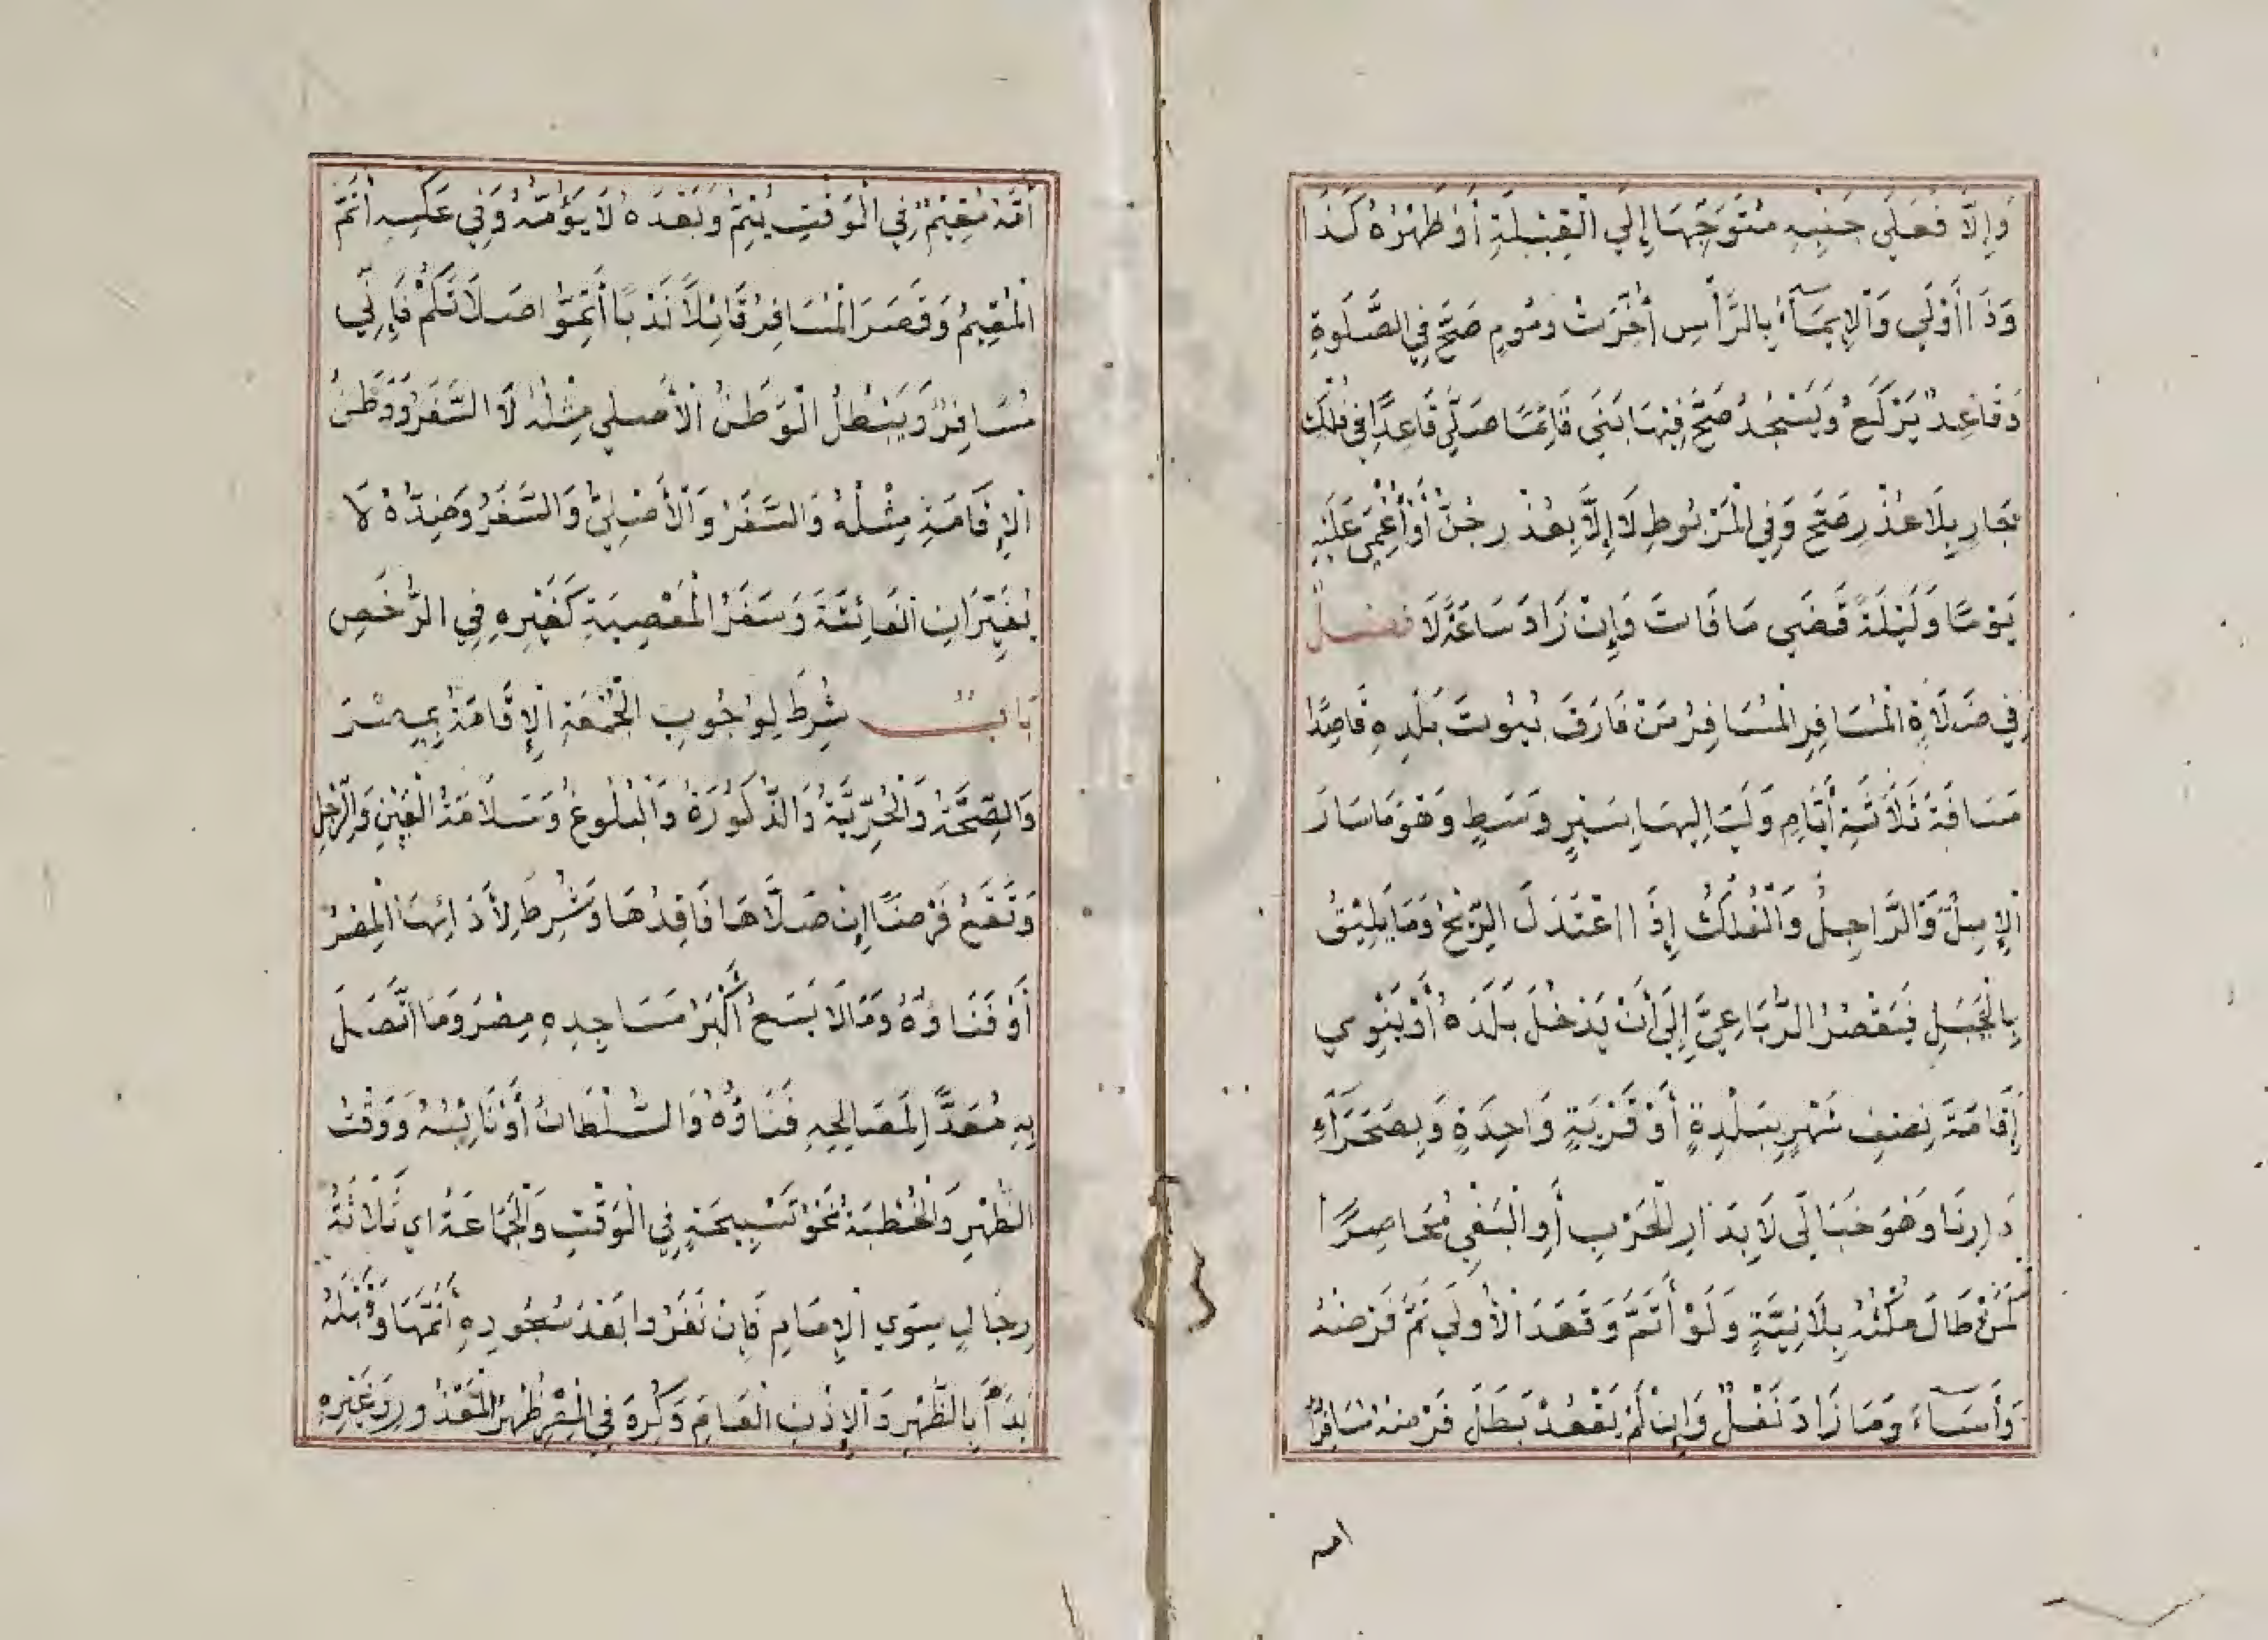 وَإِلَّا فَعَلَى جَنْبِهِ مُتَوَجِّهًا إِلَي الْقِبْلَةِ أَوْ ظَهْرُهُ كَذَا
وَذَا أَوْلَي وَالْإِيمَآءُ بِالرَّأْسِ أُخِّرَتْ وَمُومٍ صَحَّ فِي الصَّلَوةِ
وَقَاعِدٌ يَرْكَعُ وَيَسْجُدُ صَحَّ فِيْهَا بَنَي قَائِمًا صَلَّي قَاعِدًا فِي فُلْكٍ
جَارٍ بِلَا عُذْرٍ صَحَّ وَفِي الْمَرْبُوطِ لَا إِلَّا بِعُذْرٍ جُنَّ أَوْ أُغْمِيَ عَلَيْهِ
يَوْمًا وَلَيْلَةً قَضَي مَا فَاتَ وَإِنْ زَادَ سَاعَةً لَا فصل
فِي صَلَاةِ الْمُسَافِرِ الْمُسَافِرُ مَنْ فَارَقَ بُيُوتَ بَلَدِهِ قَاصِدًا
مَسَافَةَ ثَلَاثَةِ أَيَّامٍ وَلَيَالِيهَا بِسَيْرٍ وَسَطٍ وَهُوَ مَا سَارَ
الْإِبِلُ وَالرَّاجِلُ وَالْفُلْكُ إِذَا اعْتَدَلَ الرِّيْحُ وَمَا يَلِيْقُ
بِالْجَبَلِ فَيَقْصُرُ الرُّبَاعِيَّ إِلَي أَنْ يَدْخُلَ بَلَدَهُ أَوْ يَنْوِي
إِقَامَةَ نِصْفِ شَهْرٍ بِبَلْدَةٍ أَوْ قَرْيَةٍ وَاحِدَةٍ وَبِصَحْرَآءِ
دَارِنَا وَهُوَ خَبَائِي لَا بِدَارِ الْحَرْبِ أَوِ الْبَغْيِ مُحَاصِرًا
كَمَنْ طَالَ مُكْثُهُ بِلَا نِيَّةٍ وَلَوْ أَتَمَّ وَقَعَدَ الْأُولَي تَمَّ فَرْضُهُ
وَأَسَآءَ وَمَا زَادَ نَفْلٌ وَإِنْ لَمْ يَقْعُدْ بَطَلَ فَرْضُهُ مُسَافِرٌ
امه
أَمَّهُ مُقِيْمٌ فِي الْوَقْتِ يُتِمُّ وَبَعْدَهُ لَا يَؤُمُّهُ وَفِي عَكْسِهِ أَتَمَّ
الْمُقِيمُ وَقَصَرَ الْمُسَافِرُ قَائِلًا نَدْبًا أَتِمُّوا صَلَاتَكُمْ فَإِنِّي
مُسَافِرٌ وَيُبْطِلُ الْوَطَنَ الْأَصْلِي مِثْلُهُ لَا السَّفَرُ وَوَطَنُ
الْإِقَامَةِ مِثْلُهُ وَالسَّفَرُ وَالْأَصْلِيُّ وَالسَّفَرُ وَضِدُّهُ لَا
يُغَيِّرَانِ الْفَائِتَةَ وَسَفَرُ الْمَعْصِيَةِ كَغَيْرِهِ فِي الرُّخَصِ
بَابٌ شُرِطَ لِوُجُوبِ الْجُمْعَةِ الْإِقَامَةُ بِمِصْرَ
وَالصِّحَّةُ وَالْحُرِّيَّةُ وَالذُّكُورَةُ وَالْبُلُوغُ وَسَلَامَةُ الْعَيْنِ وَالرِّجْلِ
وَتَقَعُ فَرْضًا إِنْ صَلَّاهَا فَاقِدُهَا وَشُرِطَ لِأَدَائِهَا الْمِصْرُ
أَوْ فَنَاؤُهُ وَمَا لَا يَسَعُ أَكْبَرُ مَسَاجِدِهِ مِصْرُ وَمَا اتَّصَلَ
بِهِ مُعَدًّا لِمَصَالِحِهِ فَنَاؤُهُ وَالسُّلْطَانُ أَوْ نَائِبُهُ وَوَقْتُ
الظُّهْرِ وَالْخُطْبَةُ نَحْوُ تَسْبِيحَةٍ فِي الْوَقْتِ وَالْجَمَاعَةُ اي ثَلَاثَةُ
رِجَالٍ سِوَي الْإِمَامِ فَإِنْ نَفَرُوا بَعْدَ سُجُودِهِ أَتَمَّهَا وَقَبْلَهُ
بَدَأَ بِالظُّهْرِ وَالْإِذْنُ الْعَامُ وَكُرِهَ فِي الْمِصْرِ ظُهْرُ الْمَعْذُورِ وَغَيْرِهِ